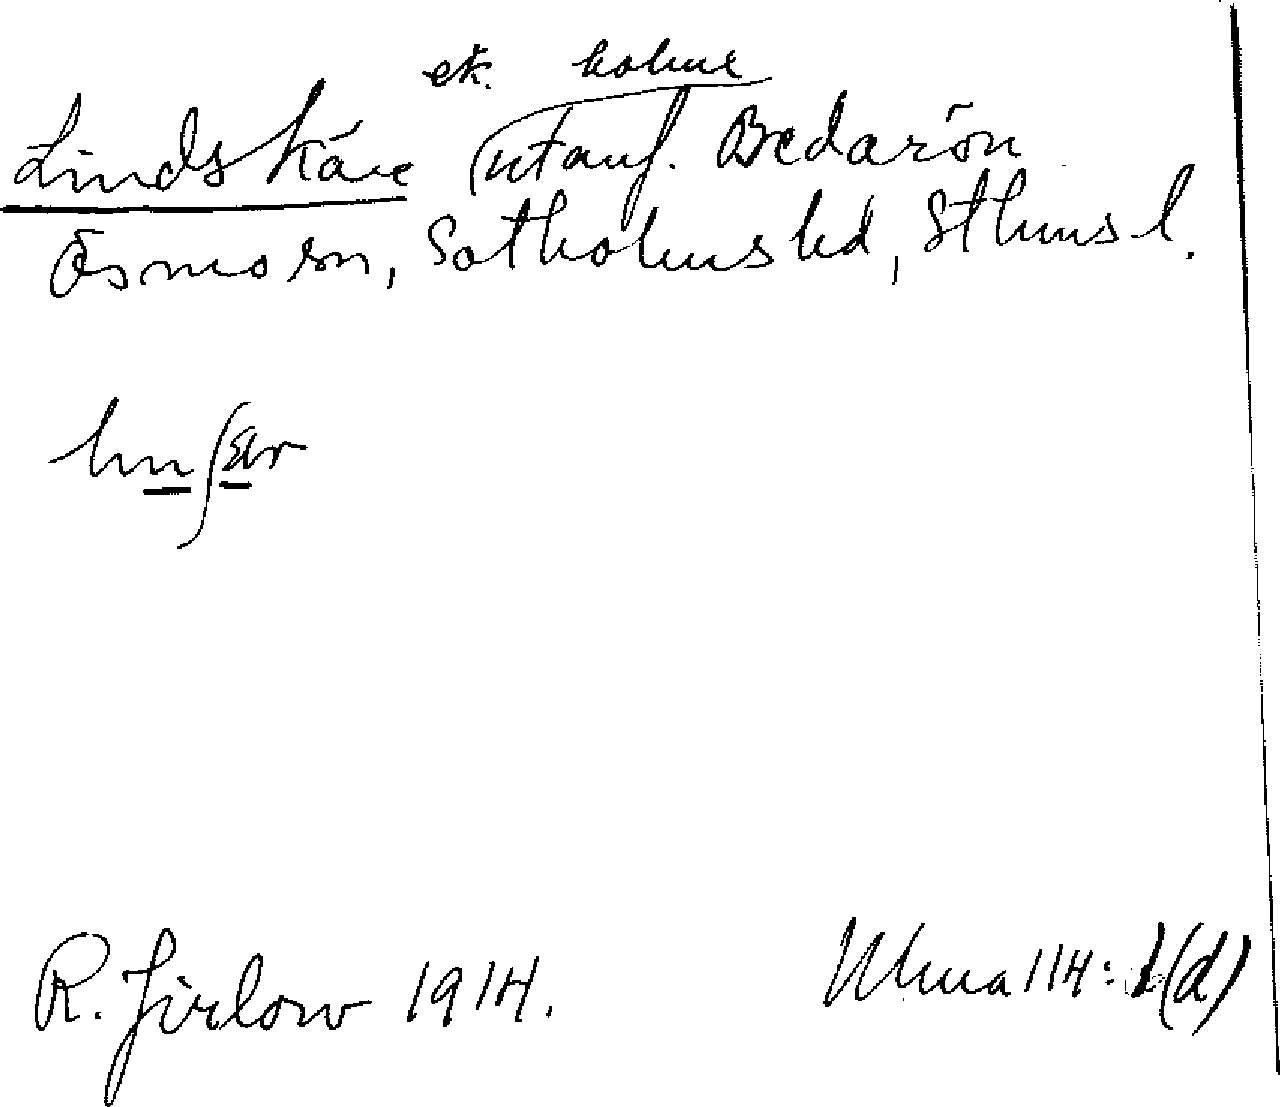 ek. holme
Lindskär utanf. Bedarön
Ösmo sn, Sotholms hd, Sthms l.
R. Jirlow 1914.
Ulma 114: 1(d)